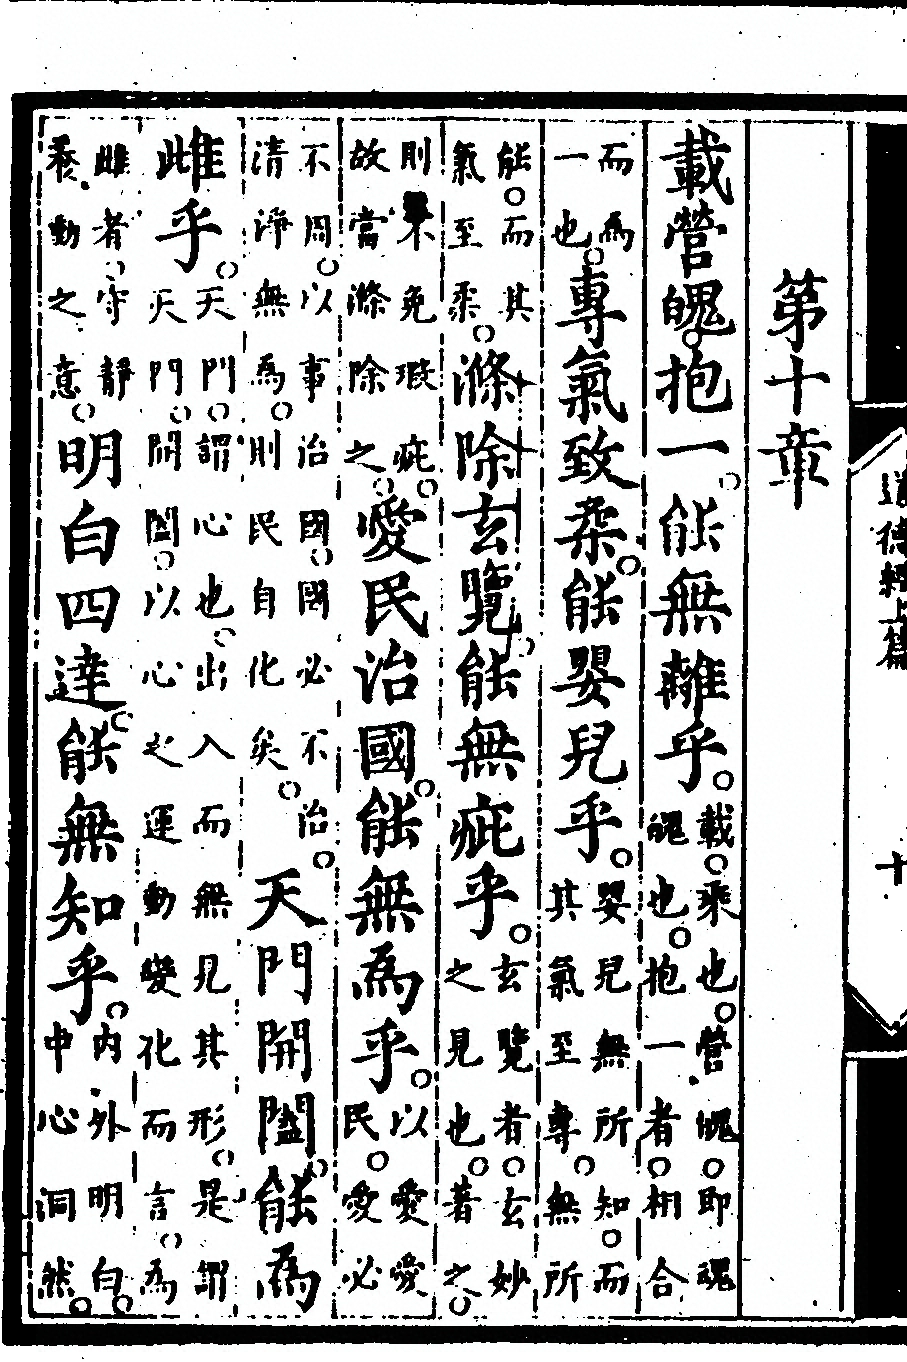 道德經上篇 十
第十章
載營魄抱一能無離乎
載乘也營魄即魂
魄也抱一者相合
而為
一也
專氣致柔能嬰兒乎
嬰兒無所知而
其氣至專無所
能而其
氣至柔
滌除玄覽能無疵乎
玄覽者玄妙
之見也著之
則免瑕疵
故當滌除之
愛民治國能無為乎
以愛愛
民愛必
不周以事治國國必不治
清淨無為則民自化矣
天門開闔能為
雌乎
天門謂心也出入而無見其形是謂
天門開闔以心之運動變化而言為
雌者守靜
動之意
明白四達能無知乎
內外明白
中心洞然